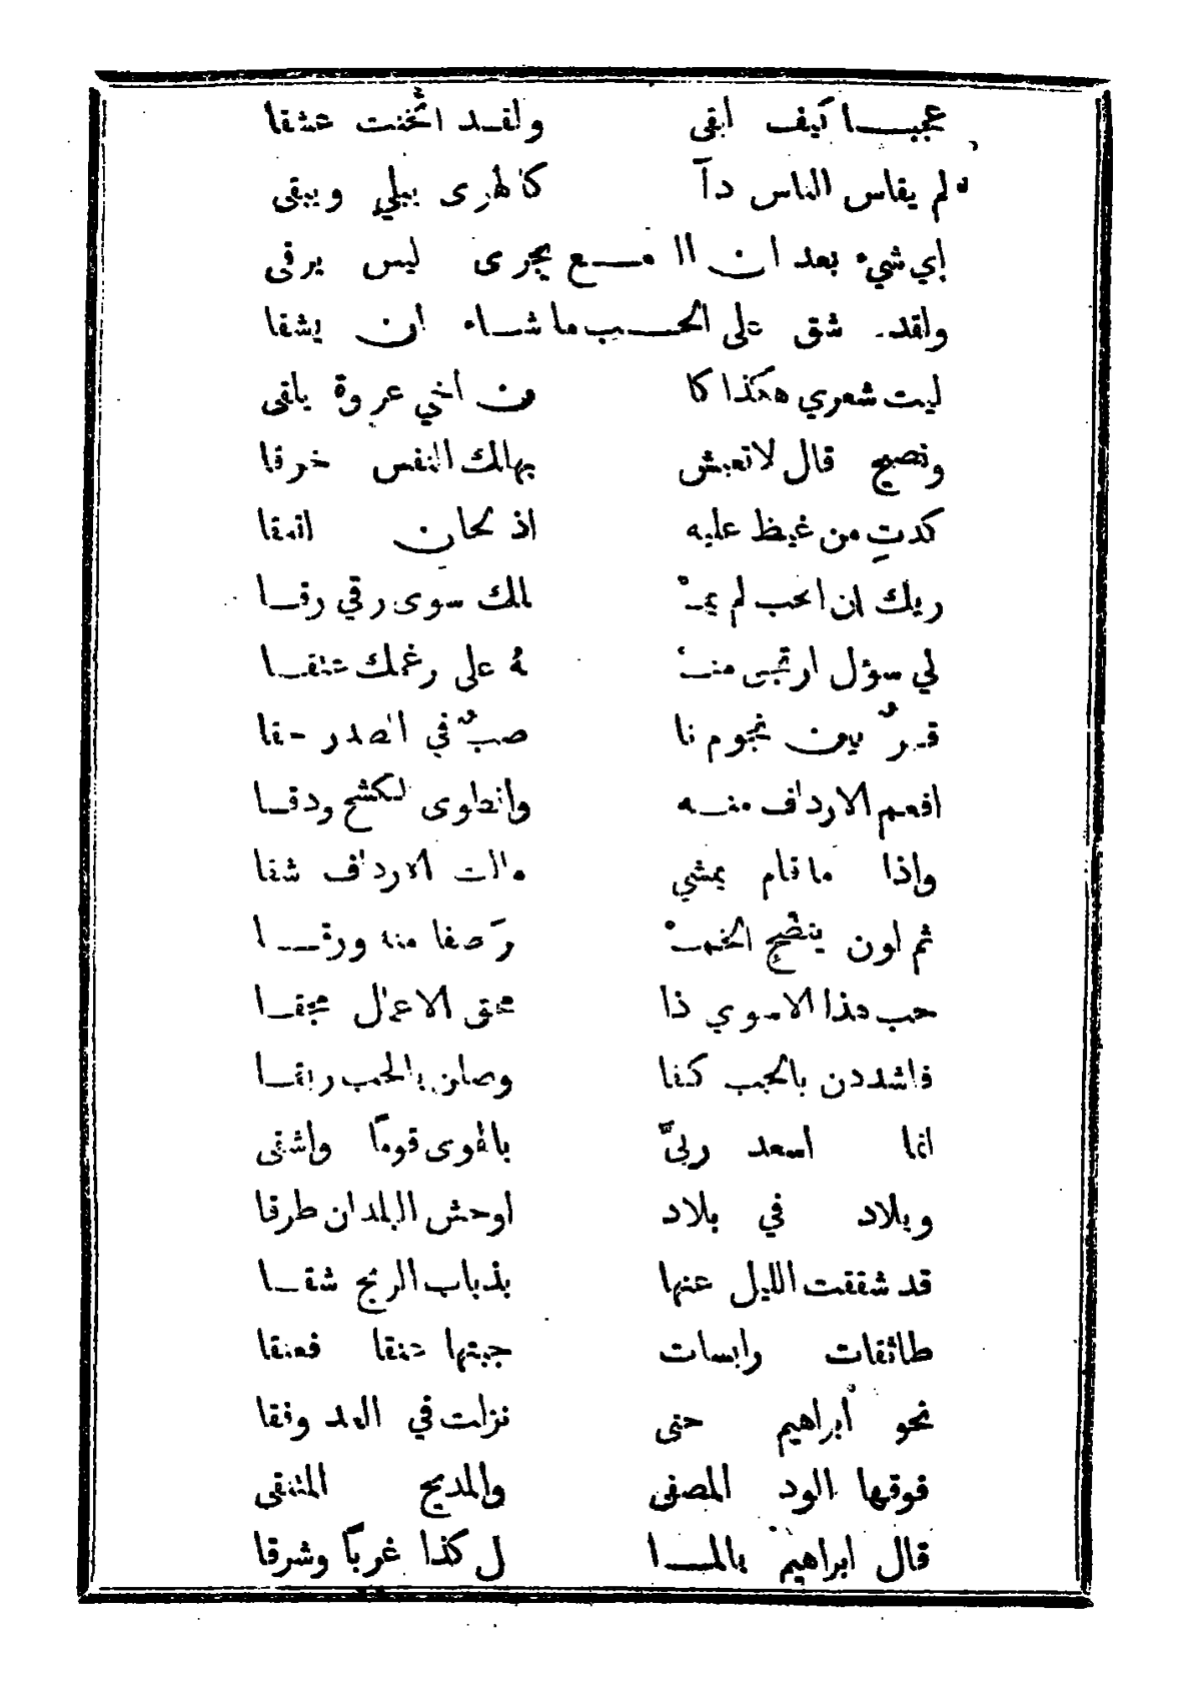 عجبا كيف ابقى ولقد اثخنت عشقا
لم يقاس الناس دآ كالهوى يبلي ويبقى
اي شيء بعد ان الدمع يجرى ليس يرقى
ولقد شق على الحب ما شاء ان يشقا
ليت شعري هكذا كا ن اخي عروة يلقى
ونصيح قال لا تعبش بهالك النفس خرقا
كدتِ من غيظ عليه اذ لحان اتمقا
ريك ان الحب لم يمـْ لك سوى رقي رقا
لي سؤل ارتجى منـ ـهُ على رغمك عتقا
قمرٌ بين نجوم نا صبٌ في الصدر حقا
افعم الارداف منه وانطوى الكشح ودقا
واذا ما قام يمشي مالت الارداف شقا
ثم لون ينضح الخمـْ رَ صفا منه ورقا
حب هذا الاموي ذا محق الاعمال محقا
فاشددن بالحب كفا وصلن بالحب ربقا
انما اسعد ربيّ بالهوى قوماً واشقى
وبلاد في بلاد اوحش البلدان طرقا
قد شققت الليل عنها بذباب الريح شقا
طائفات رابسات جبتها عنقا فعنقا
نحو ابراهيم حتى نزلت في العد وفقا
فوقها الود المصفى والمديح المنتقى
قال ابراهيم بالمـا ل كذا غرباً وشرقا